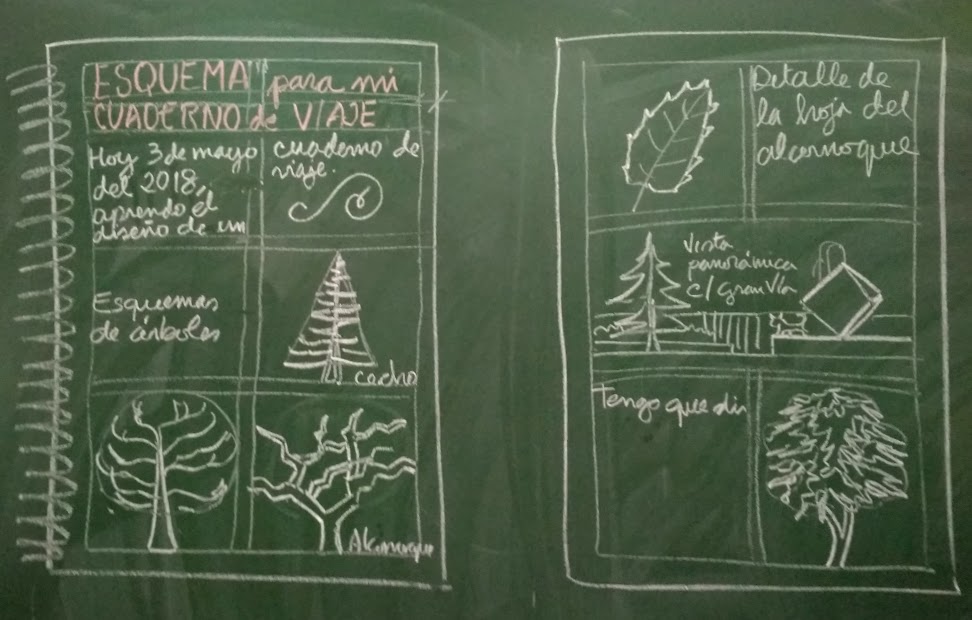 ESQUEMA para mi
CUADERNO de VIAJE
Hoy 3 de mayo
del 2018,
aprendo el
diseño de un
cuaderno de
viaje.
Esquemas
de árboles
cedro
Alcornoque
Detalle de
la hoja del
alcornoque
Vista
panorámica
c/ Gran Vía
Tengo que dir